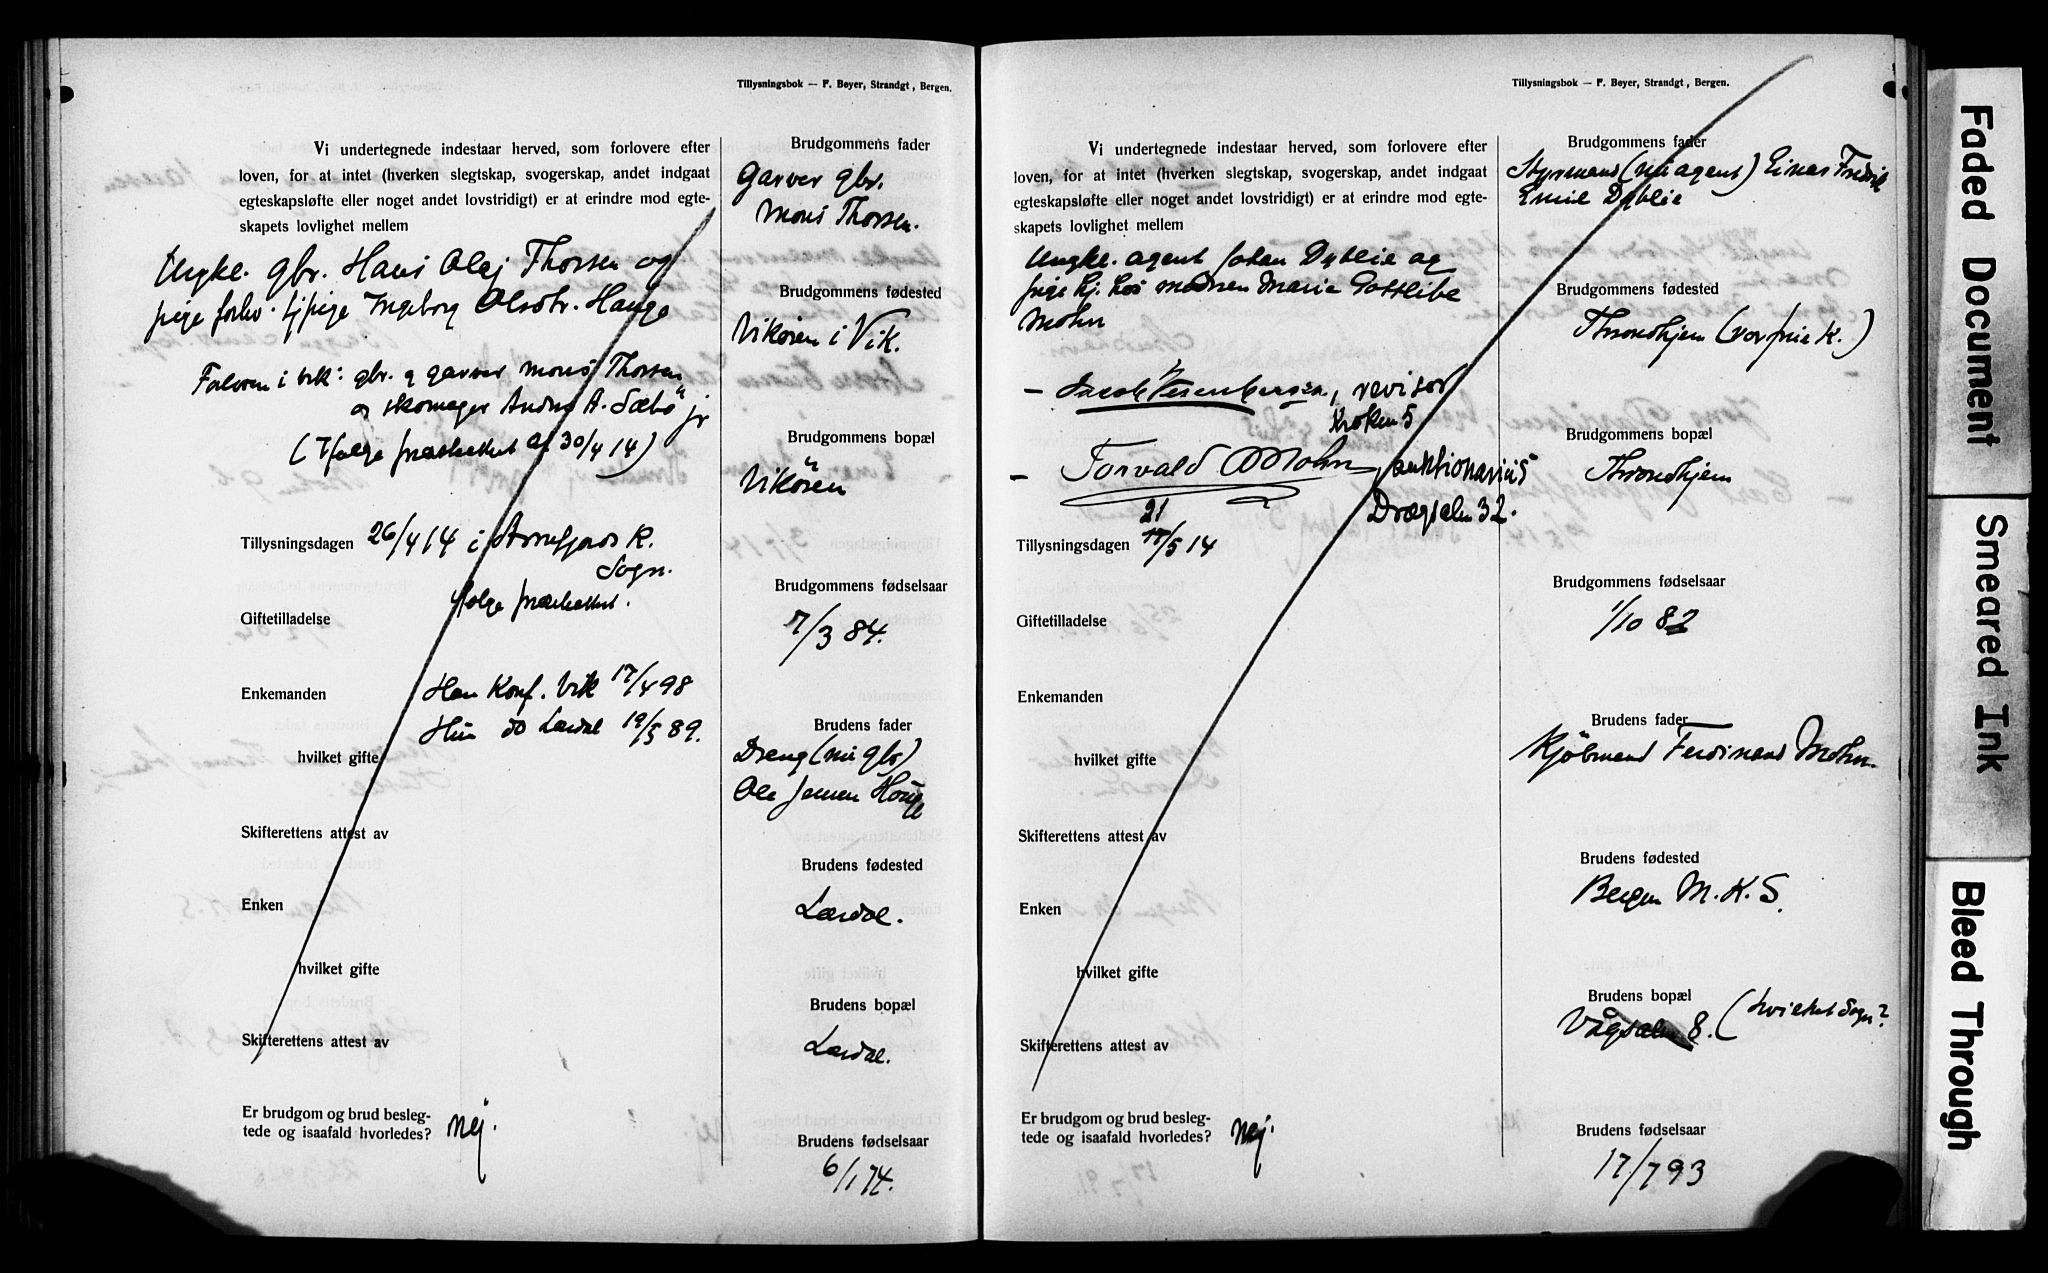 Tillysningsbok — F. Bøyer, Strandgt, Bergen.
Vi undertegnede indestaar herved, som forlovere efter
loven, for at intet (hverken slegtskap, svogerskap, andet indgaat
egteskapsløfte eller noget andet lovstridigt) er at erindre mod egte-
skapets lovlighet mellem
Ungkl. gbr. Hans Olaj Thorsen og
pige forhv. tj.pige Ingeborg Olsdtr. Hauge
Forloren i Vik: gbr. g garver Mons Thorsen
og skomager Andres A. Sæbö jr
(Ifølge præsteattest af 30/4 14)
Tillysningsdagen 26/4 14 i Arnefjords K.
Sogn.
ifølge præsteattest.
Giftetilladelse
Enkemanden
Han Konf. Vik 17/4 98
Hun do Lærdal 19/5 89.
hvilket gifte
Skifterettens attest av
Enken
hvilket gifte
Skifterettens attest av
Er brudgom og brud besleg-
tede og isaafald hvorledes? Nej.
Brudgommens fader
Garver gbr.
Mons Thorsen.
Brudgommens fødested
Vikören i Vik.
Brudgommens bopæl
Vikören
Brudgommens fødselsaar
7/3 84.
Brudens fader
Dreng (nu gbr)
Ole Jensen Houge
Brudens fødested
Lærdal.
Brudens bopæl
Lærdal.
Brudens fødselsaar
6/1 74.
Tillysningsbok — F. Bøyer, Strandgt, Bergen.
Vi undertegnede indestaar herved, som forlovere efter
loven, for at intet (hverken slegtskap, svogerskap, andet indgaat
egteskapsløfte eller noget andet lovstridigt) er at erindre mod egte-
skapets lovlighet mellem
Ungkl. agent Johan Dyblie og
pige hj. hos modren Marie Gottlibe
Mohn
— Jacob Isenbergsen, revisor
Kroken 5
— Torvald Mohn, auktionarius
Drægsalm 32.
21
Tillysningsdagen 17/5 14
Giftetilladelse
Enkemanden
hvilket gifte
Skifterettens attest av
Enken
hvilket gifte
Skifterettens attest av
Er brudgom og brud besleg-
tede og isaafald hvorledes? Nej.
Brudgommens fader
Styrmand (nu agent) Einar Fredrik
Emil Dyblie
Brudgommens fødested
Throndhjem (vor frue K.)
Brudgommens bopæl
Throndhjem
Brudgommens fødselsaar
1/10 82
Brudens fader
Kjöbmand Ferdinand Mohn.
Brudens fødested
Bergen M.K.S.
Brudens bopæl
Vågsalm 8. (hvilket Sogn?
Brudens fødselsaar
17/7 93
Faded Document
Smeared Ink
Bleed Through